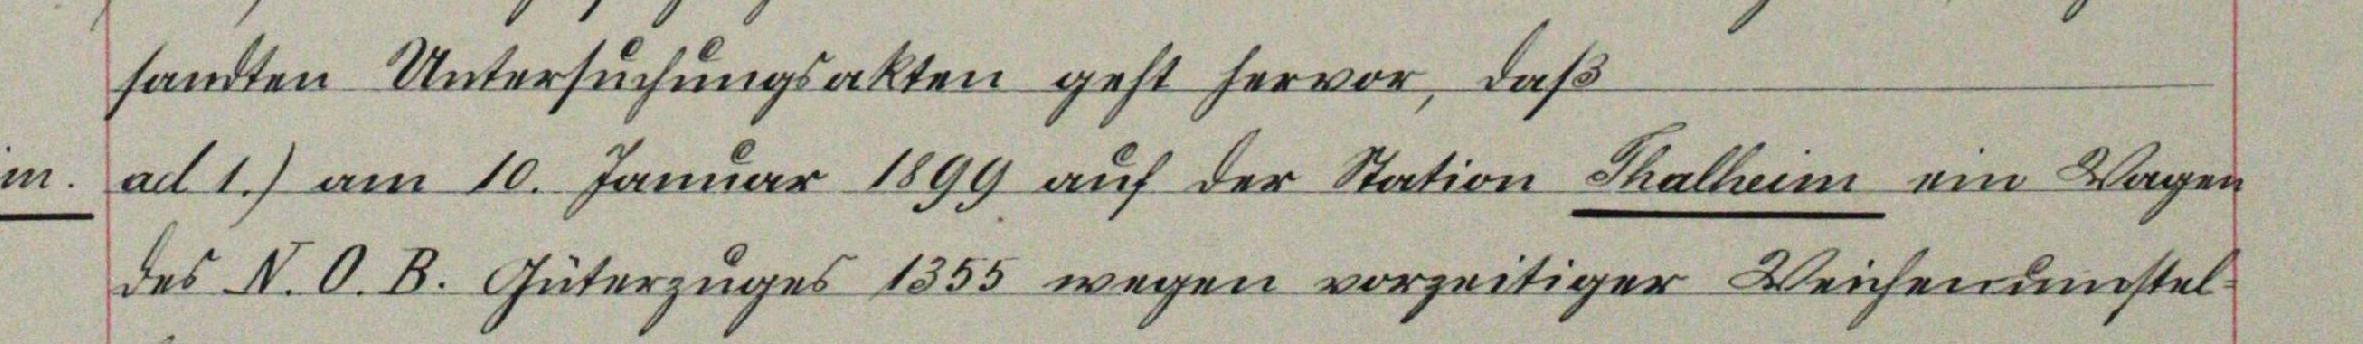 sandten Untersuchungsakten geht hervor, daß
im. ad 1.) am 10. Januar 1899 auf der Station Thalheim ein Wagen
des N. O. B. Güterzuges 1355 wegen vorzeitiger Weichenumstel-